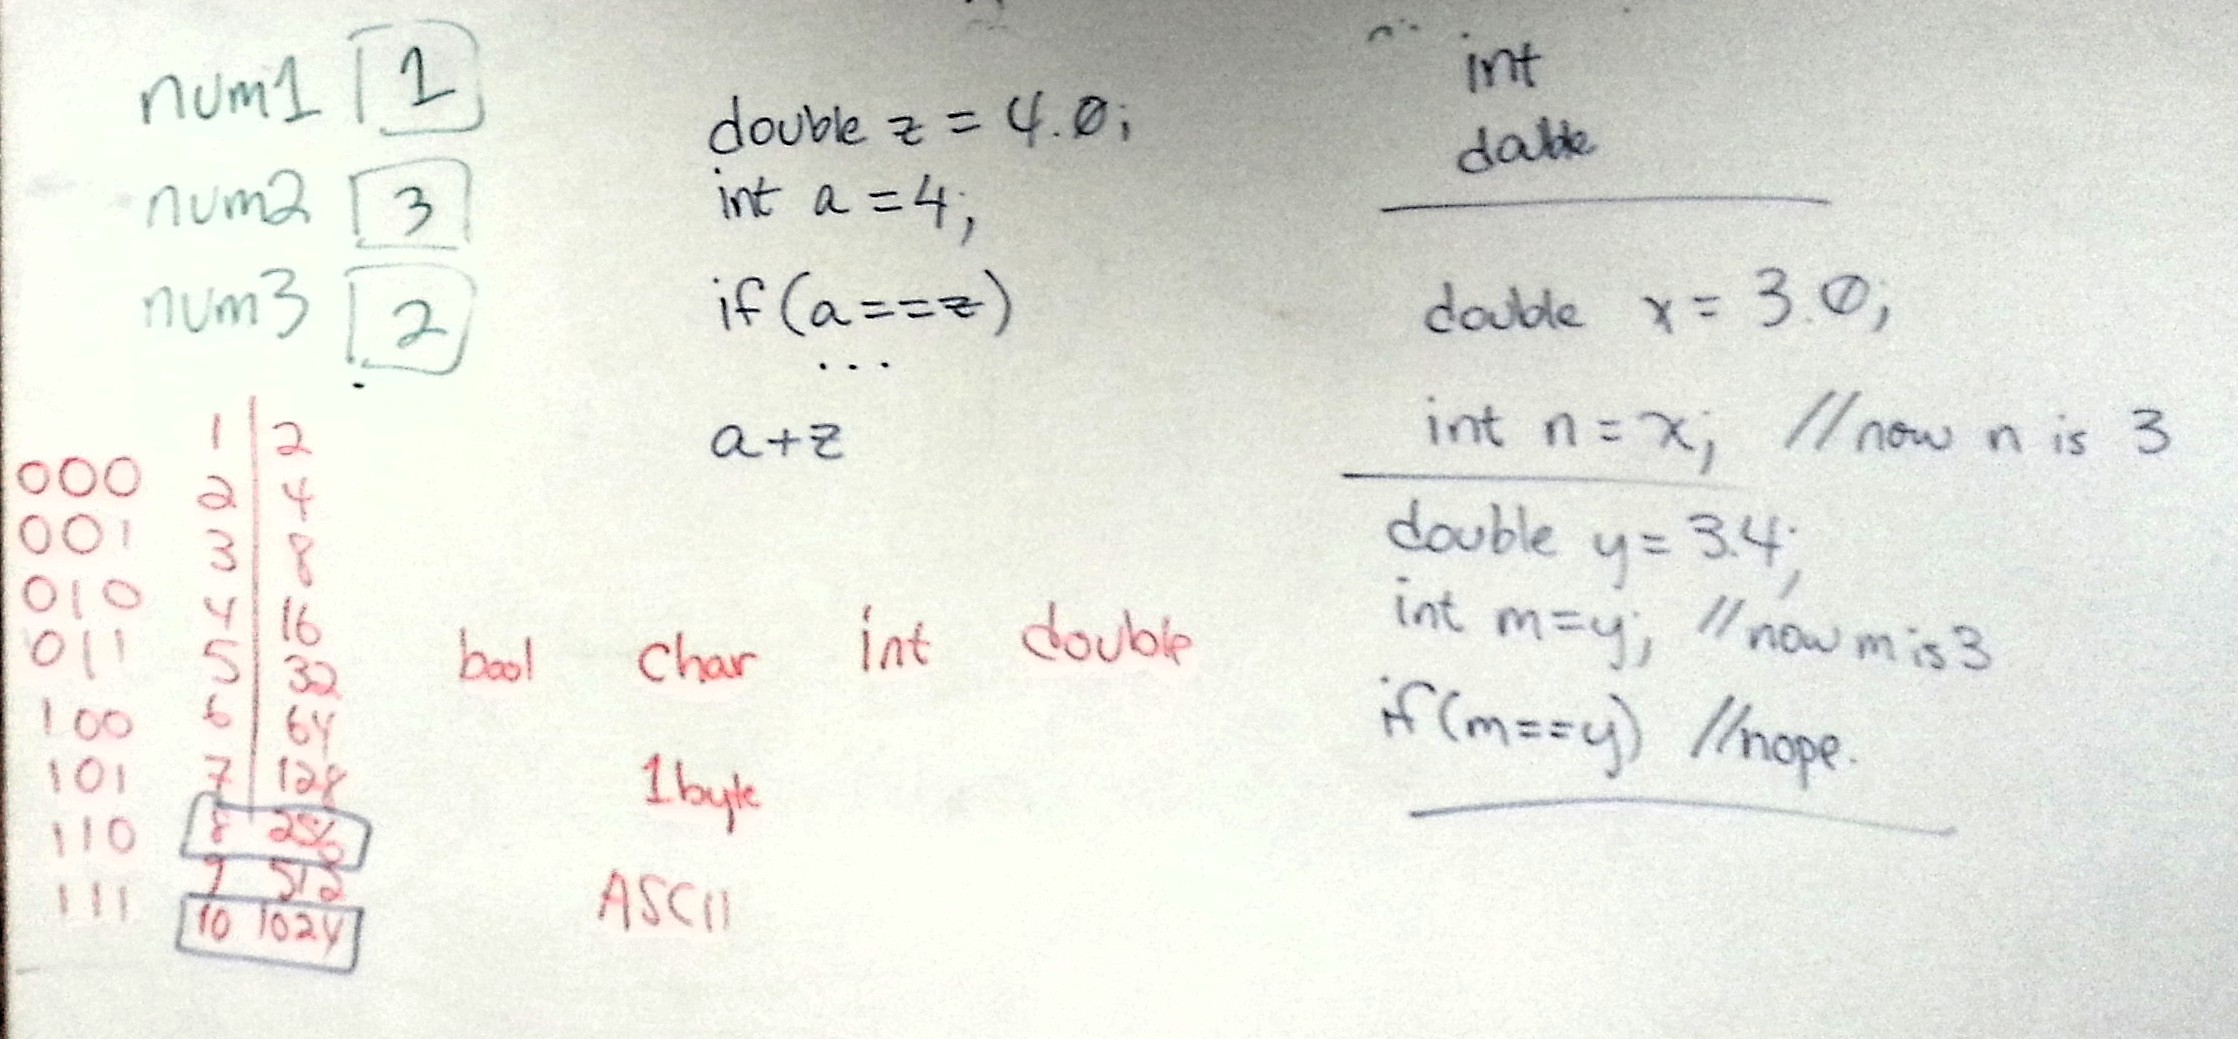 num1 1
num2 3
num3 2
double z = 4.0;
int a = 4;
if (a == z)
...
a + z
int
double
double x = 3.0;
int n = x; // now n is 3
double y = 3.4;
int m = y; // now m is 3
if (m == y) // nope.
000
001
010
011
100
101
110
111
1 2
2 4
3 8
4 16
5 32
6 64
7 128
8 256
9 512
10 1024
bool char int double
1 byte
ASCII